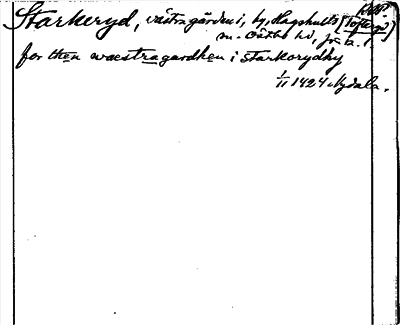 Starkeryd, västra gården i, by, Hagshults [Tofteryd]
m. Östbo hd, från a. 1.
for then waestragardhen i starkorydhy
1/11 1424 Nydala.